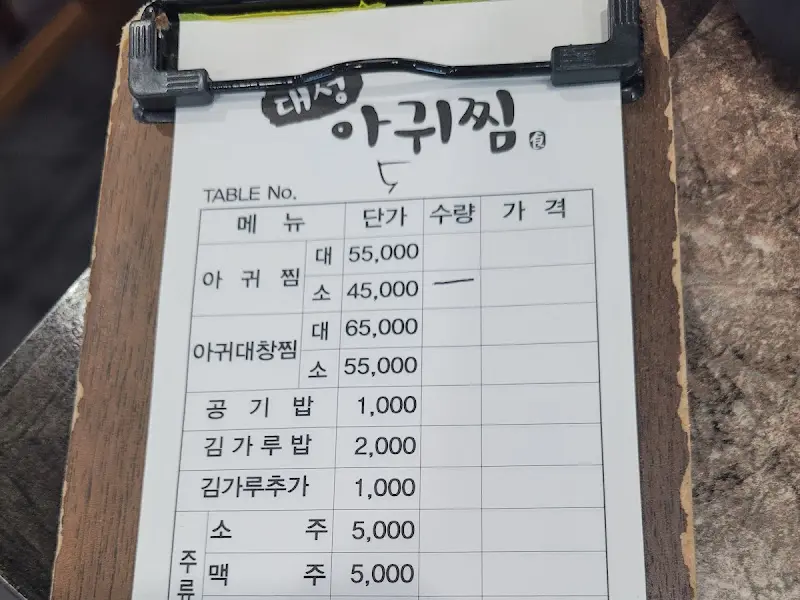 대성
아귀찜
TABLE No. 5
메뉴 단가 수량 가격
아귀찜 대 55,000
소 45,000 一
아귀대창찜 대 65,000
소 55,000
공기밥 1,000
김가루밥 2,000
김가루추가 1,000
주류 소주 5,000
맥주 5,000